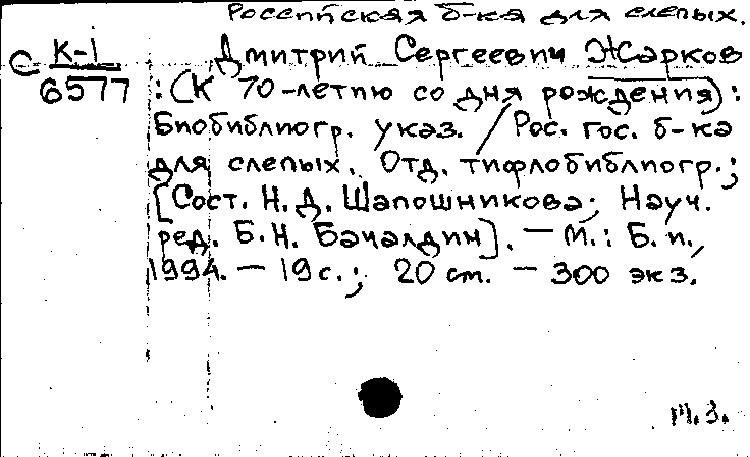 Российская б-ка для слепых.
С К-1
6577
Дмитрий Сергеевич Жарков
: (К 70-летию со дня рождения) :
Биобиблиогр. указ. / Рос. гос. б-ка
для слепых. Отд. тифлобиблиогр.;
[Сост. Н. Д. Шапошникова; Науч.
ред. Б. Н. Бачалдин]. — М.: Б. и.,
1994. — 19 с.; 20 см. — 300 экз.
М.З.